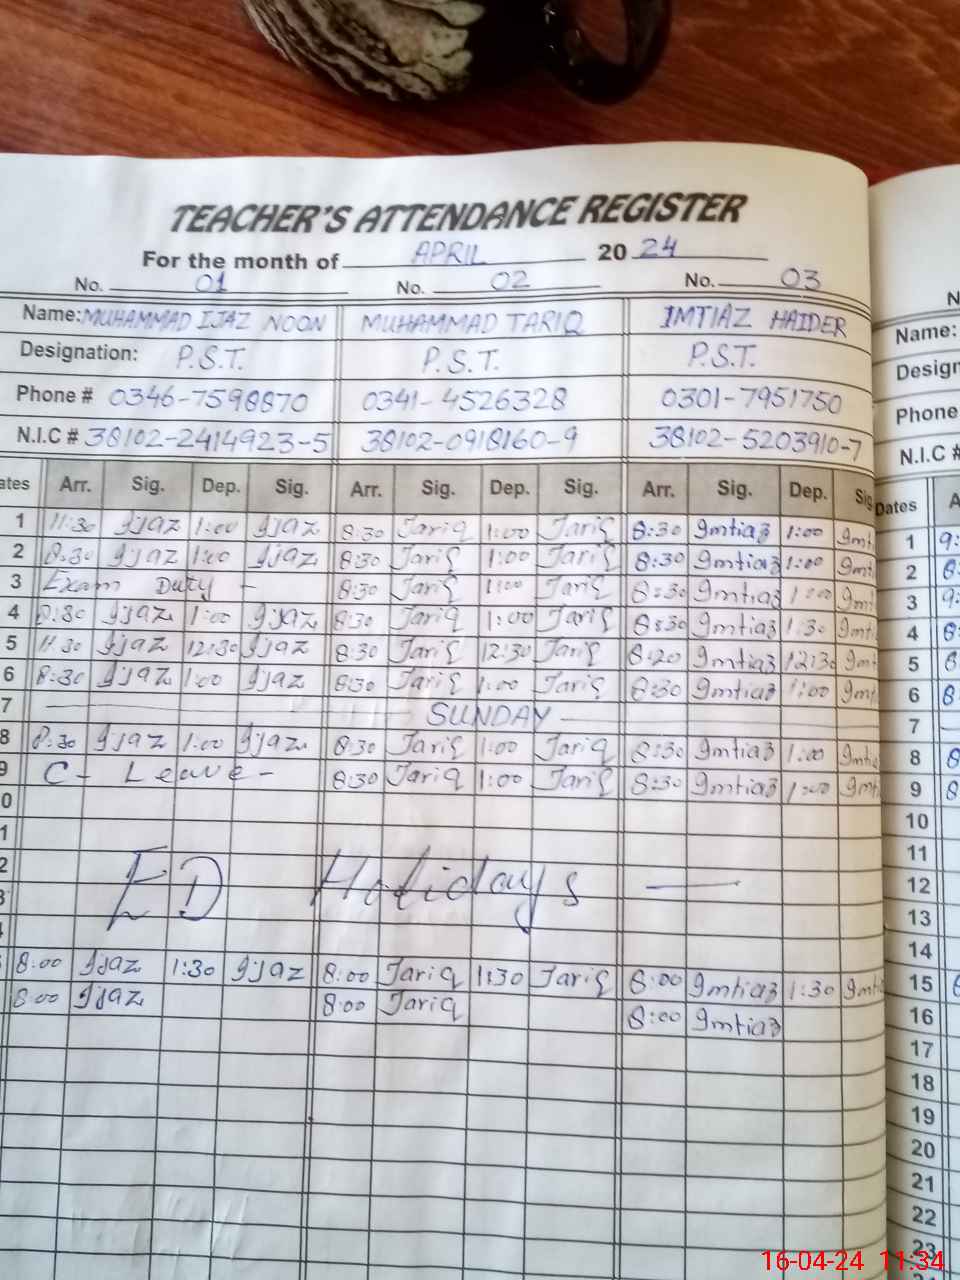 TEACHER'S ATTENDANCE REGISTER
For the month of APRIL 20 24
No. 01 No. 02 No. 03 N
Name: MUHAMMAD IJAZ NOON MUHAMMAD TARIQ IMTIAZ HAIDER Name:
Designation: P.S.T. P.S.T. P.S.T. Design
Phone # 0346-7598870 0341-4526328 0301-7951750 Phone
N.I.C # 38102-2414923-5 38102-0918160-9 38102-5203910-7 N.I.C #
ates Arr. Sig. Dep. Sig. Arr. Sig. Dep. Sig. Arr. Sig. Dep. Sig Dates A
1 11:30 Ijaz 1:00 Ijaz 8:30 Tariq 1:00 Tariq 8:30 Imtiaz 1:00 Imti 1 9:
2 8:30 Ijaz 1:00 Ijaz 8:30 Tariq 1:00 Tariq 8:30 Imtiaz 1:00 Imti 2 8:
3 Exam Duty - 8:30 Tariq 1:00 Tariq 8:30 Imtiaz 1:00 Imti 3 9:
4 8:30 Ijaz 1:00 Ijaz 8:30 Tariq 1:00 Tariq 8:30 Imtiaz 1:30 Imti 4 8:
5 11:30 Ijaz 12:30 Ijaz 8:30 Tariq 12:30 Tariq 8:20 Imtiaz 12:30 Imti 5 8
6 8:30 Ijaz 1:00 Ijaz 8:30 Tariq 1:00 Tariq 8:30 Imtiaz 1:00 Imti 6 8
7 SUNDAY 7
8 8:30 Ijaz 1:00 Ijaz 8:30 Tariq 1:00 Tariq 8:30 Imtiaz 1:00 Imtia 8 8
9 C- Leave - 8:30 Tariq 1:00 Tariq 8:30 Imtiaz 1:00 Imti 9 8
0 10
1 11
2 EID Holidays — 12
3 13
14
8:00 Ijaz 1:30 Ijaz 8:00 Tariq 1:30 Tariq 8:00 Imtiaz 1:30 Imti 15 8
8:00 Ijaz 8:00 Tariq 8:00 Imtiaz 16
17
18
19
20
21
22
23
16-04-24 11:34